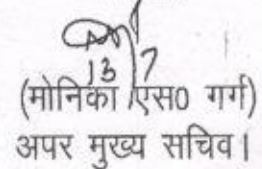 13/7
(मोनिका एस0 गर्ग)
अपर मुख्य सचिव।